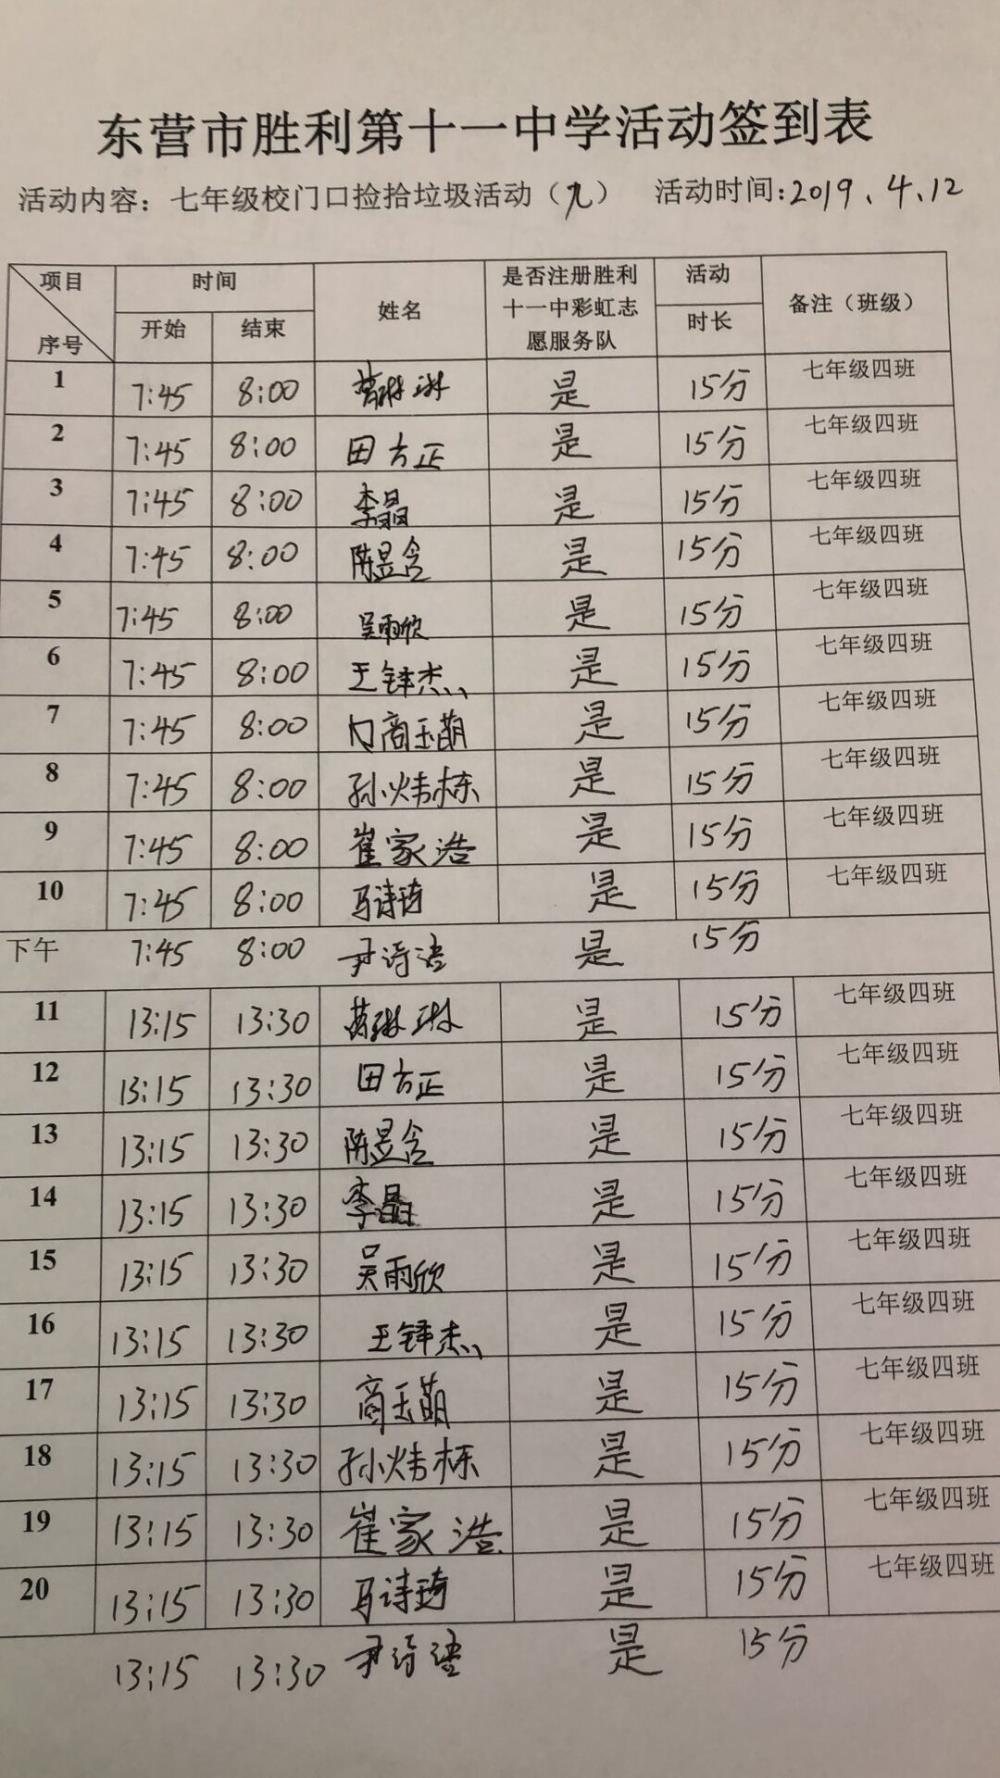 东营市胜利第十一中学活动签到表
活动内容：七年级校门口捡拾垃圾活动（九） 活动时间:2019.4.12
项目 序号 时间 开始 结束 姓名 是否注册胜利十一中彩虹志愿服务队 活动时长 备注（班级）
1 7:45 8:00 是 15分 七年级四班
2 7:45 8:00 田方正 是 15分 七年级四班
3 7:45 8:00 李晶 是 15分 七年级四班
4 7:45 8:00 陈昱含 是 15分 七年级四班
5 7:45 8:00 吴雨欣 是 15分 七年级四班
6 7:45 8:00 王锌杰 是 15分 七年级四班
7 7:45 8:00 商玉萌 是 15分 七年级四班
8 7:45 8:00 孙炜栋 是 15分 七年级四班
9 7:45 8:00 崔家浩 是 15分 七年级四班
10 7:45 8:00 马诗琦 是 15分 七年级四班
下午 7:45 8:00 尹诗语 是 15分
11 13:15 13:30 是 15分 七年级四班
12 13:15 13:30 田方正 是 15分 七年级四班
13 13:15 13:30 陈昱含 是 15分 七年级四班
14 13:15 13:30 李晶 是 15分 七年级四班
15 13:15 13:30 吴雨欣 是 15分 七年级四班
16 13:15 13:30 王锌杰 是 15分 七年级四班
17 13:15 13:30 商玉萌 是 15分 七年级四班
18 13:15 13:30 孙炜栋 是 15分 七年级四班
19 13:15 13:30 崔家浩 是 15分 七年级四班
20 13:15 13:30 马诗琦 是 15分 七年级四班
13:15 13:30 尹诗语 是 15分